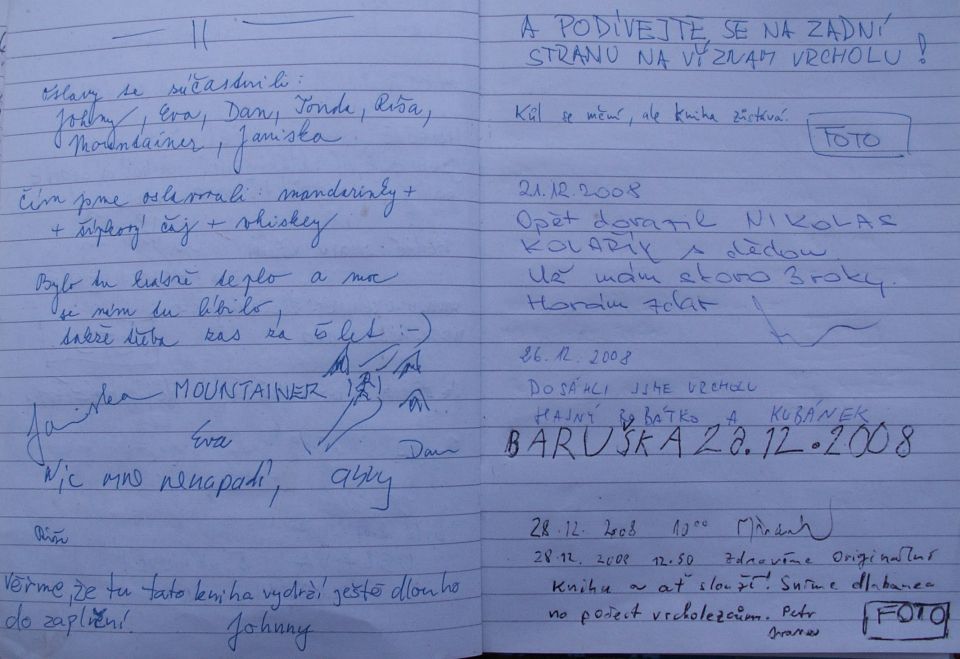 Oslavy se súčastnili:
Johny, Eva, Dan, Tonda, Ríša,
Mountainer, Janiska.
Čím jsme oslavovali: mandarinky +
+ šípkový čaj + whiskey
Bylo tu krásně teplo a moc
se nám tu líbilo,
takže třeba zas za 5 let :-)
Janiska MOUNTAINER
Eva
Dan
Nic mně nenapadí,
Ríša
Věřme, že tu tato kniha vydrží ještě dlouho
do zaplnění.
Johnny
A PODÍVEJTE SE NA ZADNÍ
STRANU NA VÝZNAM VRCHOLU!
Kůl se mění, ale kniha zůstává.
FOTO
21.12.2008
Opět dorazil NIKOLAS
KOLAŘÍK s dědou.
Už mám skoro 3 roky.
Horám zdar
26.12.2008
DOSÁHLI JSME VRCHOLU
HAJNÝ ROBÁTKO A KUBÁNEK
BARUŠKA 28.12.2008
28.12. 2008 10⁰⁰
28.12. 2008 12.50 Zdravíme Originální
knihu a ať slouží! Sníme dlabanec
na počest vrcholezcům. Petr
FOTO